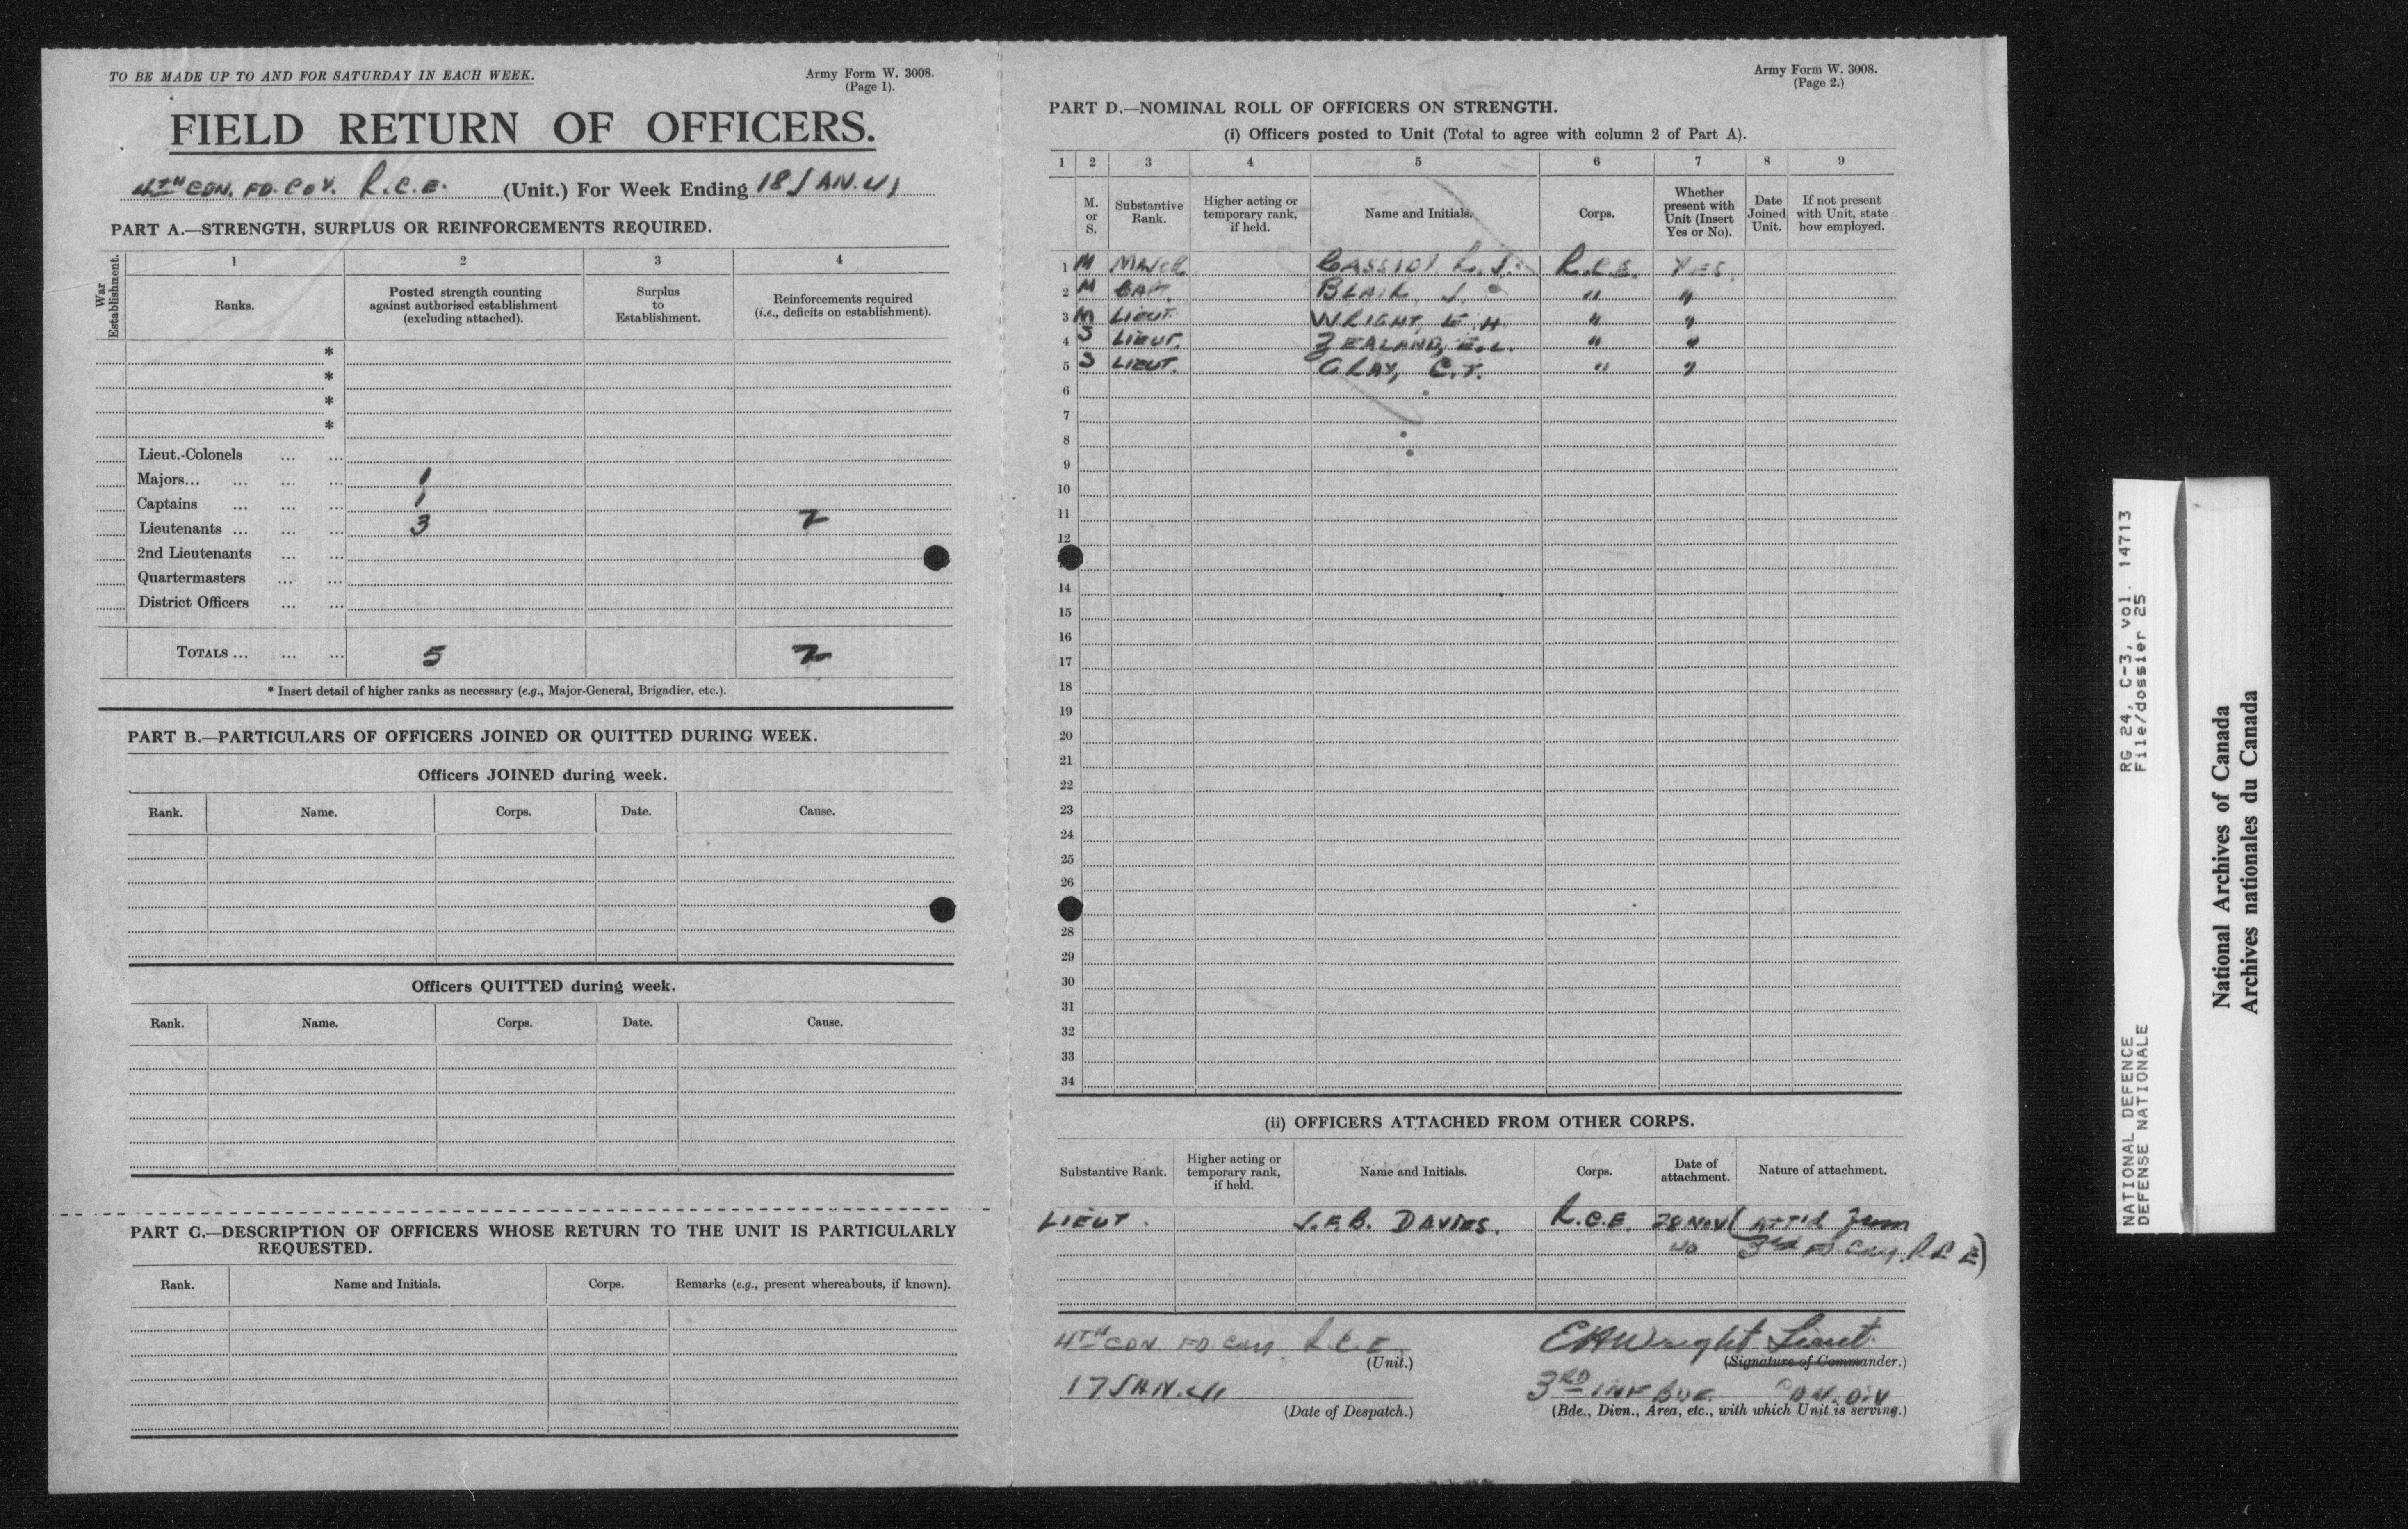 TO BE MADE UP TO AND FOR SATURDAY IN EACH WEEK.
Army Form W. 3008.
(Page 1).
FIELD RETURN OF OFFICERS.
4TH CDN. FD. COY. R.C.E. (Unit.) For Week Ending 18 JAN. 41
PART A.—STRENGTH, SURPLUS OR REINFORCEMENTS REQUIRED.
War Establishment.
1 2 3 4
Ranks.
Posted strength counting against authorised establishment (excluding attached).
Surplus to Establishment.
Reinforcements required (i.e., deficits on establishment).
*
*
*
*
Lieut.-Colonels ... ...
Majors... ... ... ... 1
Captains ... ... ... 1
Lieutenants ... ... ... 3 2
2nd Lieutenants ... ...
Quartermasters ... ...
District Officers ... ...
TOTALS ... ... ... 5 2
* Insert detail of higher ranks as necessary (e.g., Major-General, Brigadier, etc.).
PART B.—PARTICULARS OF OFFICERS JOINED OR QUITTED DURING WEEK.
Officers JOINED during week.
Rank. Name. Corps. Date. Cause.
Officers QUITTED during week.
Rank. Name. Corps. Date. Cause.
PART C.—DESCRIPTION OF OFFICERS WHOSE RETURN TO THE UNIT IS PARTICULARLY
REQUESTED.
Rank. Name and Initials. Corps. Remarks (e.g., present whereabouts, if known).
Army Form W. 3008.
(Page 2.)
PART D.—NOMINAL ROLL OF OFFICERS ON STRENGTH.
(i) Officers posted to Unit (Total to agree with column 2 of Part A).
1 2 3 4 5 6 7 8 9
M. or S.
Substantive Rank.
Higher acting or temporary rank, if held.
Name and Initials.
Corps.
Whether present with Unit (Insert Yes or No).
Date Joined Unit.
If not present with Unit, state how employed.
1 M MAJOR CASSIDY R.C.E. YES
2 M CAPT. BLAIR, J. " "
3 M LIEUT. WRIGHT, E.H. " "
4 S LIEUT. ZEALAND, E.L. " "
5 S LIEUT. GRAY, C.T. " "
6
7
8
9
10
11
12
14
15
16
17
18
19
20
21
22
23
24
25
26
28
29
30
31
32
33
34
(ii) OFFICERS ATTACHED FROM OTHER CORPS.
Substantive Rank.
Higher acting or temporary rank, if held.
Name and Initials.
Corps.
Date of attachment.
Nature of attachment.
LIEUT. J.E.B. DAVIES. R.C.E. 28 NOV (ATT'D from
40 3rd FD. Coy. R C E)
4TH CDN. FD. Coy. R.C.E.
(Unit.)
EHWright Lieut.
(Signature of Commander.)
17 JAN. 41
(Date of Despatch.)
3RD INF BDE. DIV
(Bde., Divn., Area, etc., with which Unit is serving.)
NATIONAL DEFENCE RG 24, C-3, vol. 14713
DEFENSE NATIONALE File/dossier 25
National Archives of Canada
Archives nationales du Canada